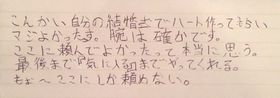 こんかい自分の結婚式でハート作ってもらい
マジよかったす。腕は確かです。
ここに頼んでよかったって本当に思う。
最後まで気に入るまでやってくれる。
もぉ〜ここにしか頼めない。